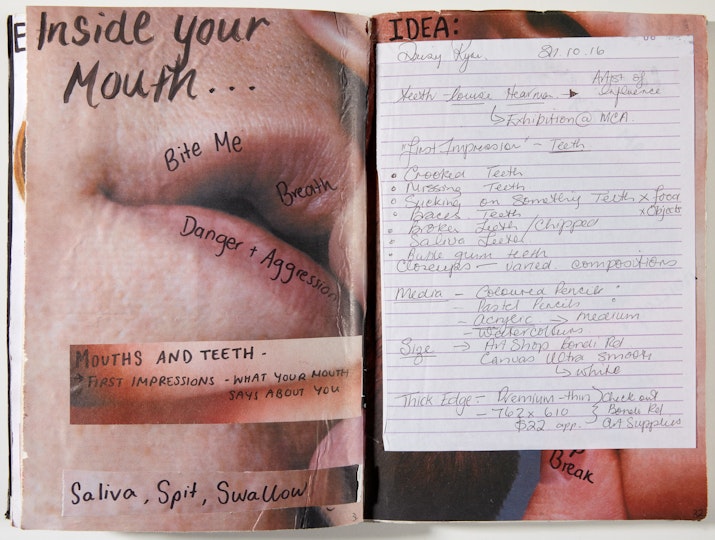 E
Inside your
Mouth...
Bite Me
Breath
Danger + Aggression
MOUTHS AND TEETH -
→ FIRST IMPRESSIONS - WHAT YOUR MOUTH
SAYS ABOUT YOU
Saliva, Spit, Swallow
IDEA:
10.16
Teeth - Louise Hearman → Artist of
Influence
↳ Exhibition @ MCA.
"First Impression" - Teeth
• Crooked Teeth
• Missing Teeth
• Sucking on something Teeth x food
x Objects
• Braces Teeth
• Broken Teeth / Chipped
• Saliva Teeth
• Bubble gum teeth
Closeups - varied compositions
Media - Coloured Pencils
- Pastel Pencils
- Acrylic → medium
- Watercolours
Size → Art Shop Bondi Rd
Canvas Ultra Smooth
↳ white
Thick Edge = Premium - thin } Check out
- 762 x 610 } Bondi Rd
$22 app. } Art Supplies
Break